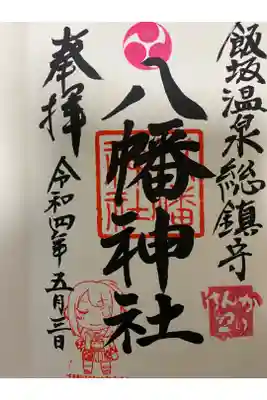 飯坂温泉総鎮守
八幡神社
奉拝
令和四年五月三日